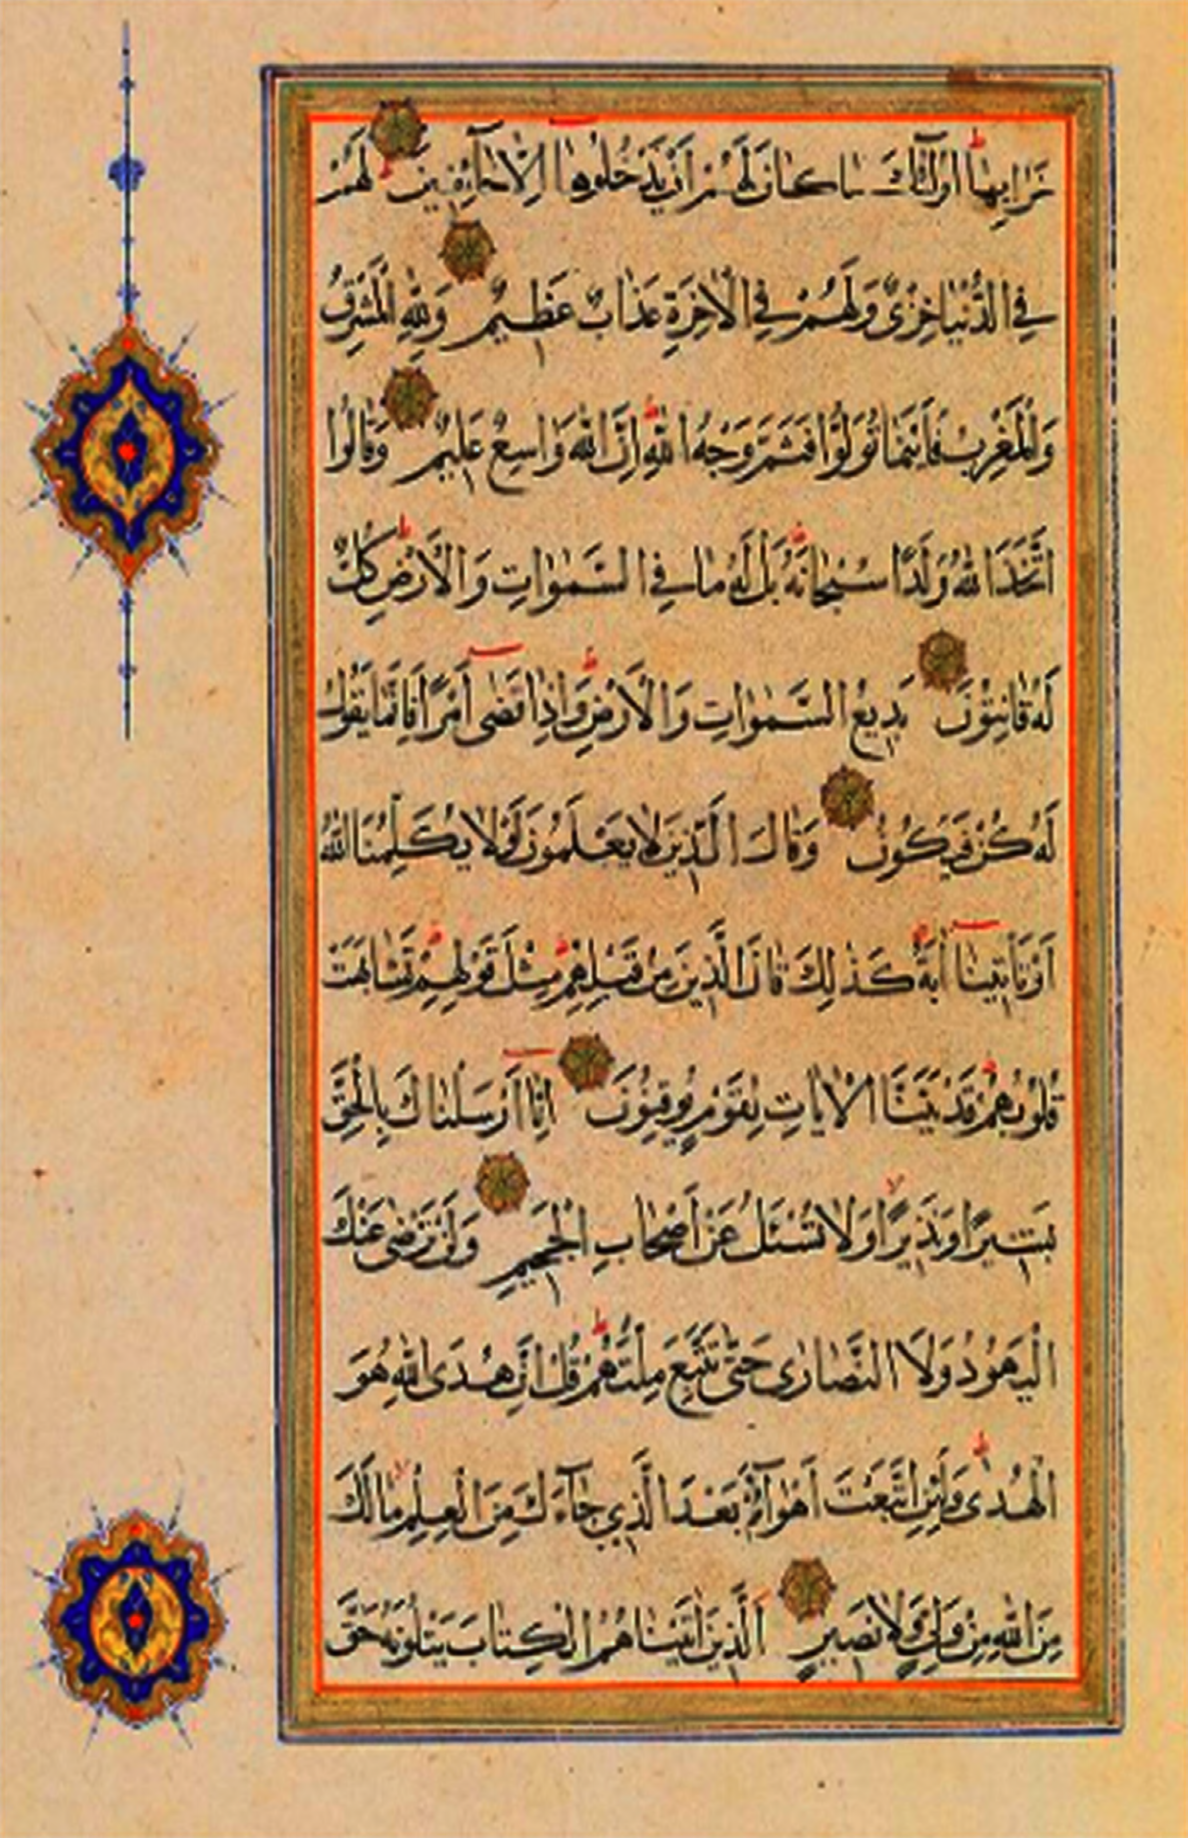 خَرَابِهَا اُولٰئِكَ مَا كَانَ لَهُمْ اَنْ يَدْخُلُوهَا اِلَّا خَائِفِينَ لَهُمْ
فِي الدُّنْيَا خِزْيٌ وَلَهُمْ فِي الْاٰخِرَةِ عَذَابٌ عَظِيمٌ وَلِلّٰهِ الْمَشْرِقُ
وَالْمَغْرِبُ فَاَيْنَمَا تُوَلُّوا فَثَمَّ وَجْهُ اللّٰهِ اِنَّ اللّٰهَ وَاسِعٌ عَلِيمٌ وَقَالُوا
اتَّخَذَ اللّٰهُ وَلَدًا سُبْحَانَهُ بَلْ لَهُ مَا فِي السَّمٰوَاتِ وَالْاَرْضِ كُلٌّ
لَهُ قَانِتُونَ بَدِيعُ السَّمٰوَاتِ وَالْاَرْضِ وَاِذَا قَضٰى اَمْرًا فَاِنَّمَا يَقُولُ
لَهُ كُنْ فَيَكُونُ وَقَالَ الَّذِينَ لَا يَعْلَمُونَ لَوْلَا يُكَلِّمُنَا اللّٰهُ
اَوْ تَاْتِينَا اٰيَةٌ كَذٰلِكَ قَالَ الَّذِينَ مِنْ قَبْلِهِمْ مِثْلَ قَوْلِهِمْ تَشَابَهَتْ
قُلُوبُهُمْ قَدْ بَيَّنَّا الْاٰيَاتِ لِقَوْمٍ يُوقِنُونَ اِنَّا اَرْسَلْنَاكَ بِالْحَقِّ
بَشِيرًا وَنَذِيرًا وَلَا تُسْئَلُ عَنْ اَصْحَابِ الْجَحِيمِ وَلَنْ تَرْضٰى عَنْكَ
الْيَهُودُ وَلَا النَّصَارٰى حَتّٰى تَتَّبِعَ مِلَّتَهُمْ قُلْ اِنَّ هُدَى اللّٰهِ هُوَ
الْهُدٰى وَلَئِنِ اتَّبَعْتَ اَهْوَاءَهُمْ بَعْدَ الَّذِي جَاءَكَ مِنَ الْعِلْمِ مَا لَكَ
مِنَ اللّٰهِ مِنْ وَلِيٍّ وَلَا نَصِيرٍ اَلَّذِينَ اٰتَيْنَاهُمُ الْكِتَابَ يَتْلُونَهُ حَقَّ